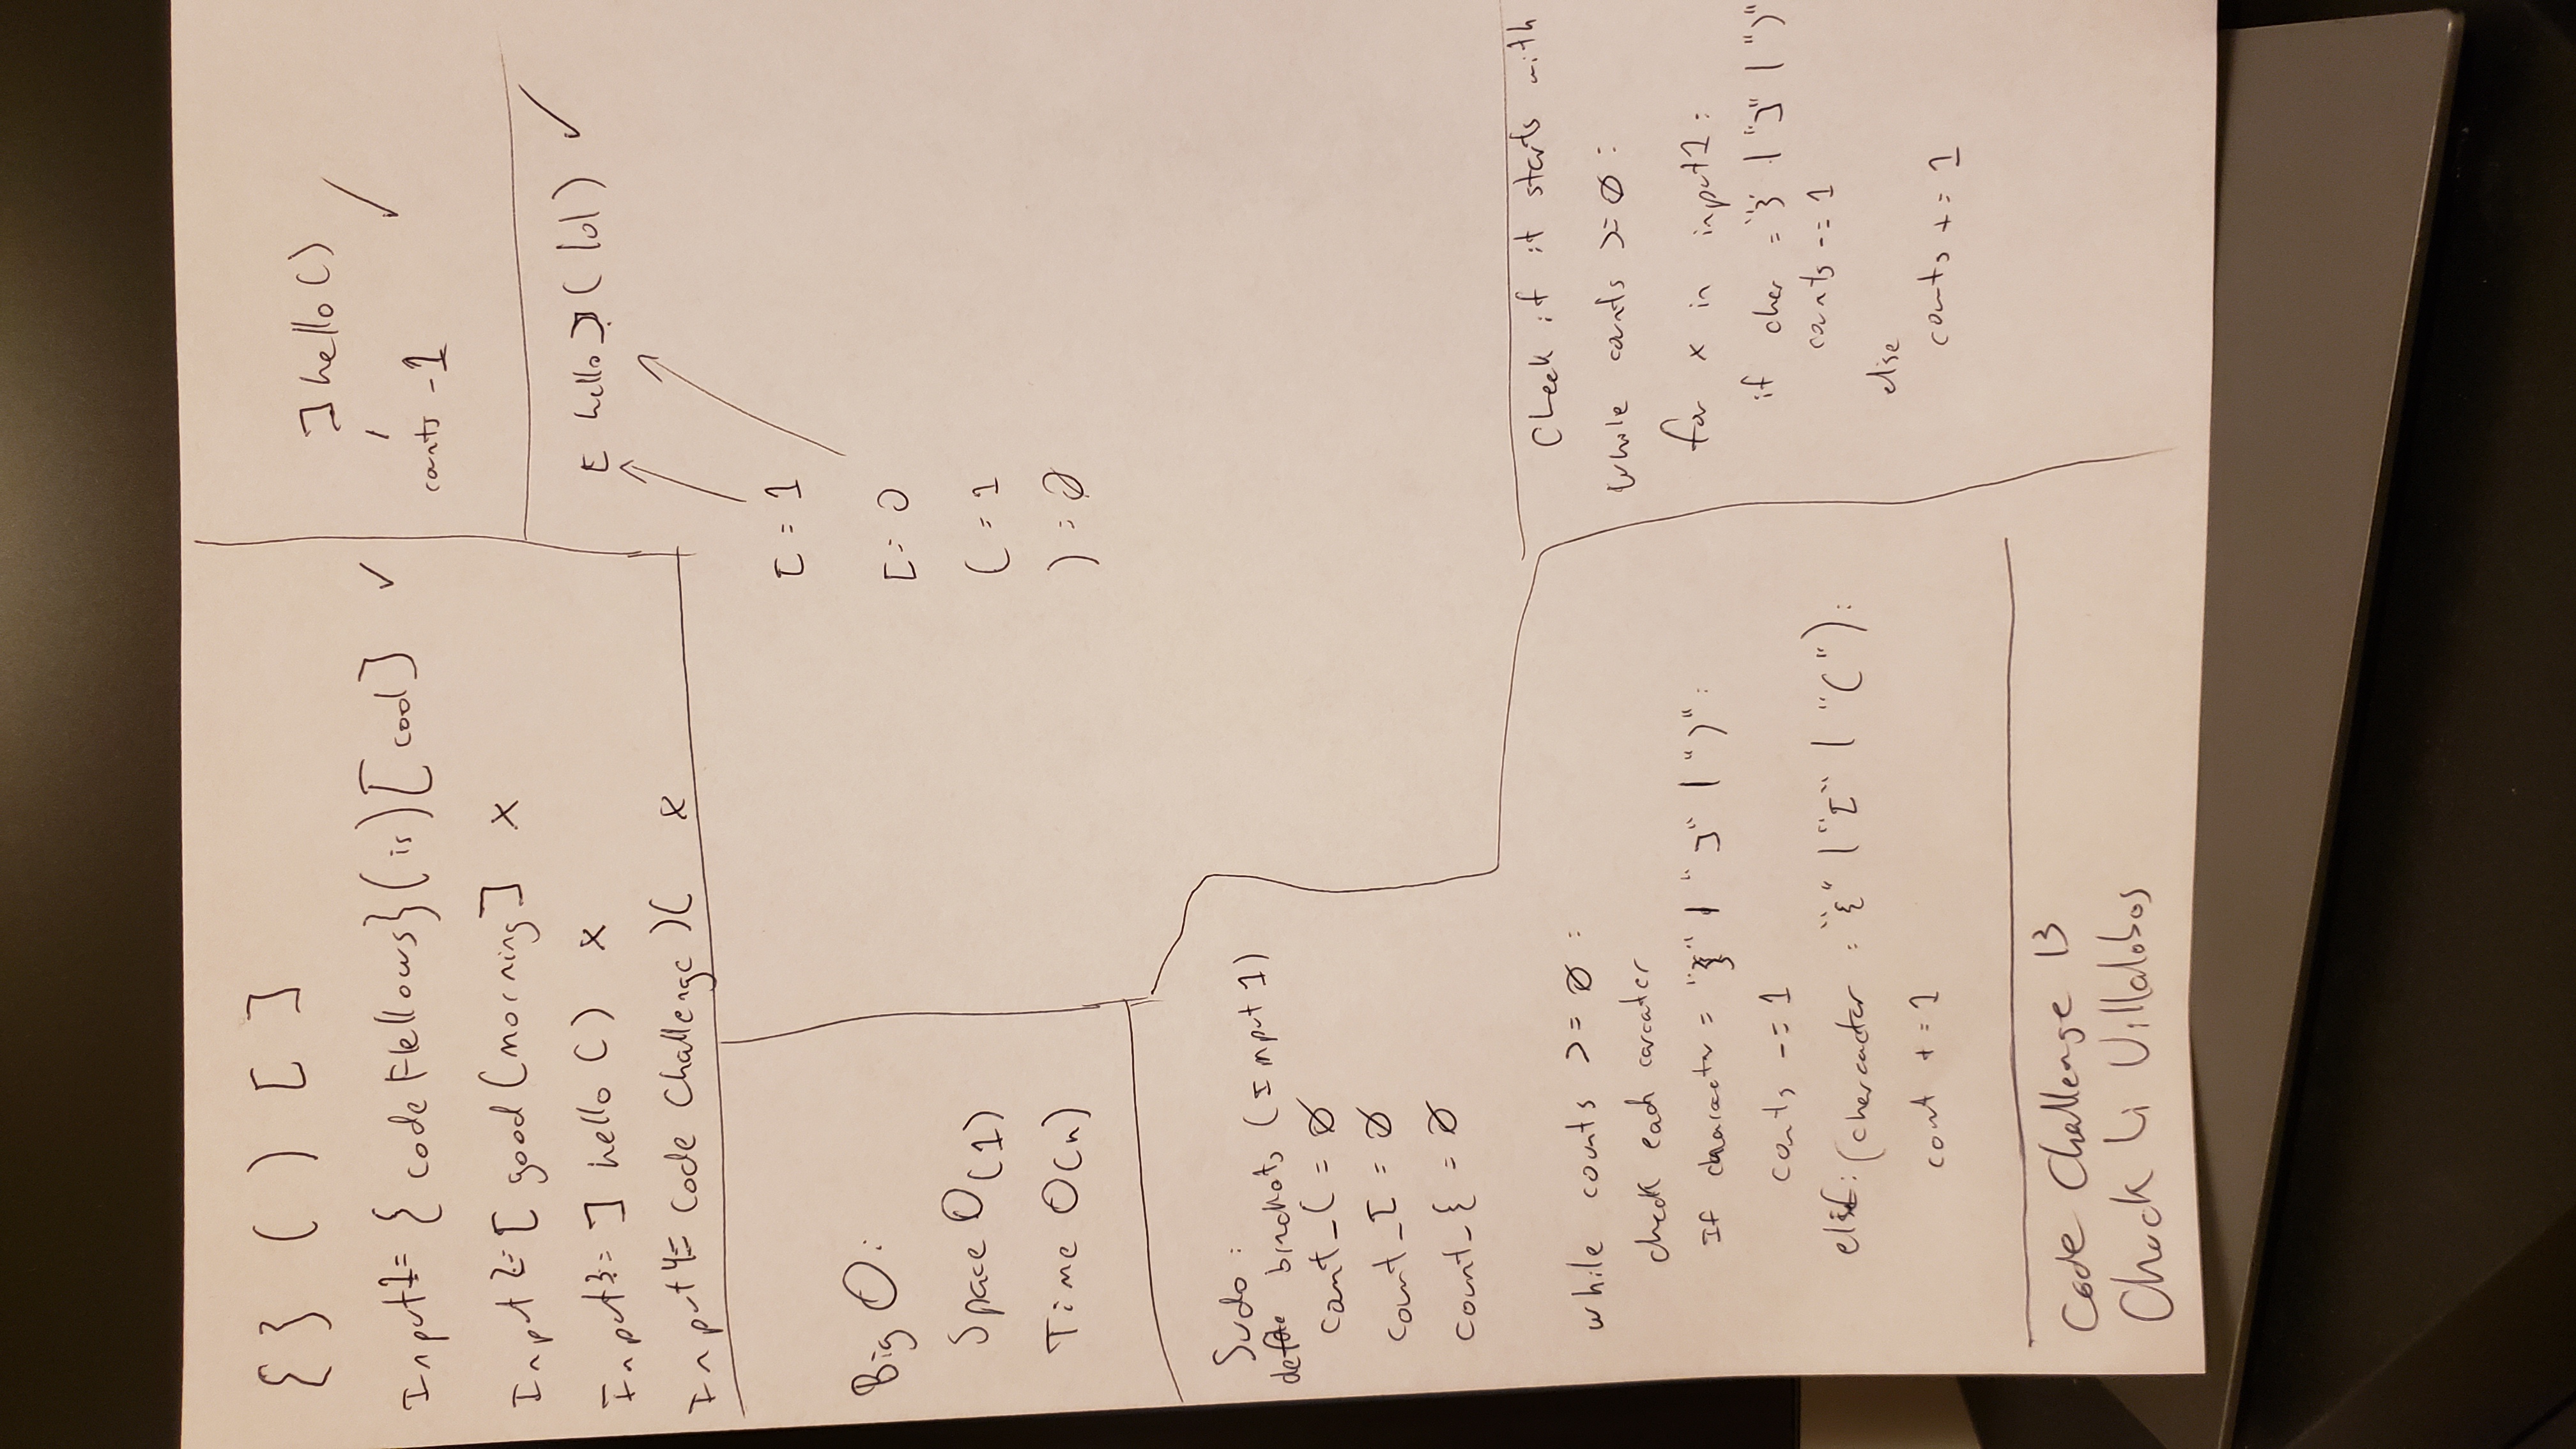 { } ( ) [ ]
Input1= { code Fellows}(is)[cool] ✓
Input2= [ good (morning] x
Input3= ] hello () x
Input4= Code Challenge )( x
] hello ()
✓
counts -1
[ hello ] ( lol ) ✓
[ = 1
[ = 0
( = 1
) = 0
Big O:
Space O(1)
Time O(n)
Sudo:
brackets (Input 1)
count_( = 0
count_[ = 0
count_{ = 0
while counts >= 0 :
check each carcater
If character = "}" | "]" | ")":
conts -= 1
elif: (chercacter = "{" | "[" | "("):
cont += 1
Check if it starts with
while counts >= 0 :
for x in input1:
if char = "}" | "]" | ")"
counts -= 1
else
counts += 1
Code Challenge 13
Chuck Li Villalobos